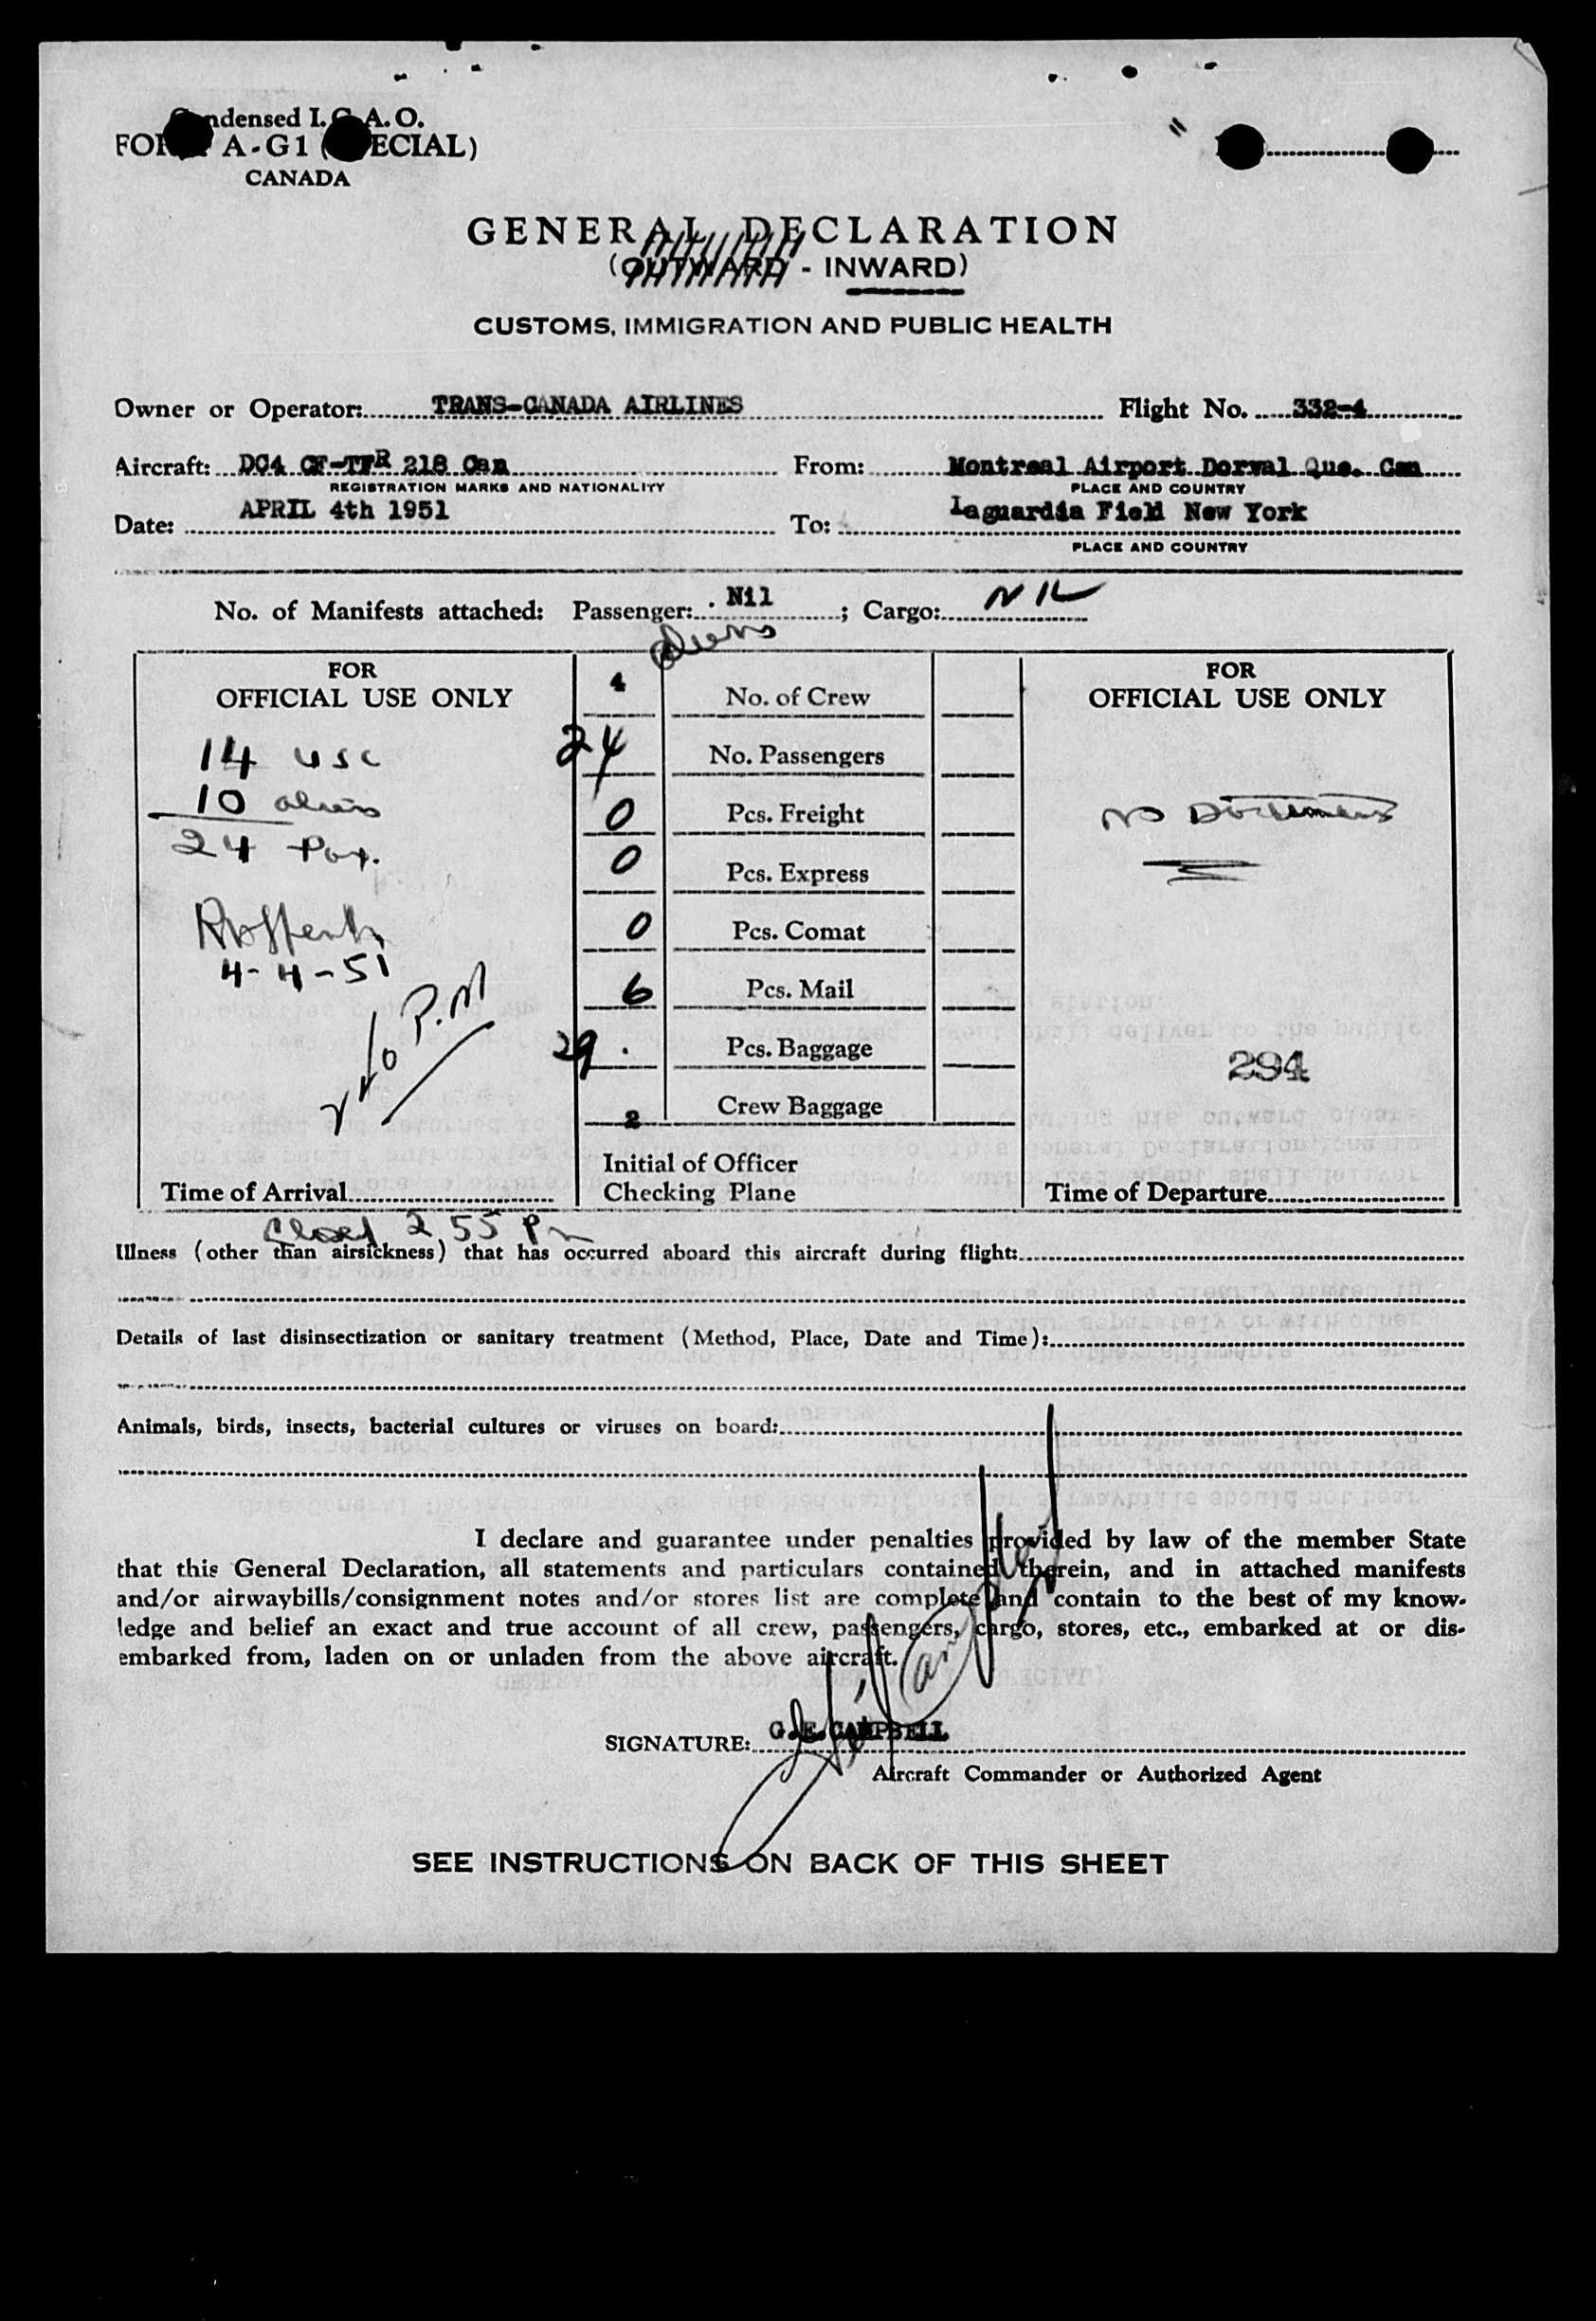 Condensed I.C.A.O.
FORM A-G1 (SPECIAL)
CANADA
GENERAL DECLARATION
(OUTWARD - INWARD)
CUSTOMS, IMMIGRATION AND PUBLIC HEALTH
Owner or Operator: TRANS-CANADA AIRLINES Flight No. 332-4
Aircraft: DC4 CF-TFR 218 Can From: Montreal Airport Dorval Que. Can
REGISTRATION MARKS AND NATIONALITY PLACE AND COUNTRY
Date: APRIL 4th 1951 To: Laguardia Field New York
PLACE AND COUNTRY
No. of Manifests attached: Passenger: Nil ; Cargo: NIL
FOR
OFFICIAL USE ONLY
14 USC
10 aliens
24 Pax.
4-4-51
P.M
Time of Arrival
4 No. of Crew
24 No. Passengers
0 Pcs. Freight
0 Pcs. Express
0 Pcs. Comat
6 Pcs. Mail
29 Pcs. Baggage
2 Crew Baggage
Initial of Officer
Checking Plane
FOR
OFFICIAL USE ONLY
No Documents
294
Time of Departure
Closed 2 55 P
Illness (other than airsickness) that has occurred aboard this aircraft during flight:
Details of last disinsectization or sanitary treatment (Method, Place, Date and Time):
Animals, birds, insects, bacterial cultures or viruses on board:
I declare and guarantee under penalties provided by law of the member State
that this General Declaration, all statements and particulars contained therein, and in attached manifests
and/or airwaybills/consignment notes and/or stores list are complete and contain to the best of my know-
ledge and belief an exact and true account of all crew, passengers, cargo, stores, etc., embarked at or dis-
embarked from, laden on or unladen from the above aircraft.
SIGNATURE: G.E.CAMPBELL
Aircraft Commander or Authorized Agent
SEE INSTRUCTIONS ON BACK OF THIS SHEET